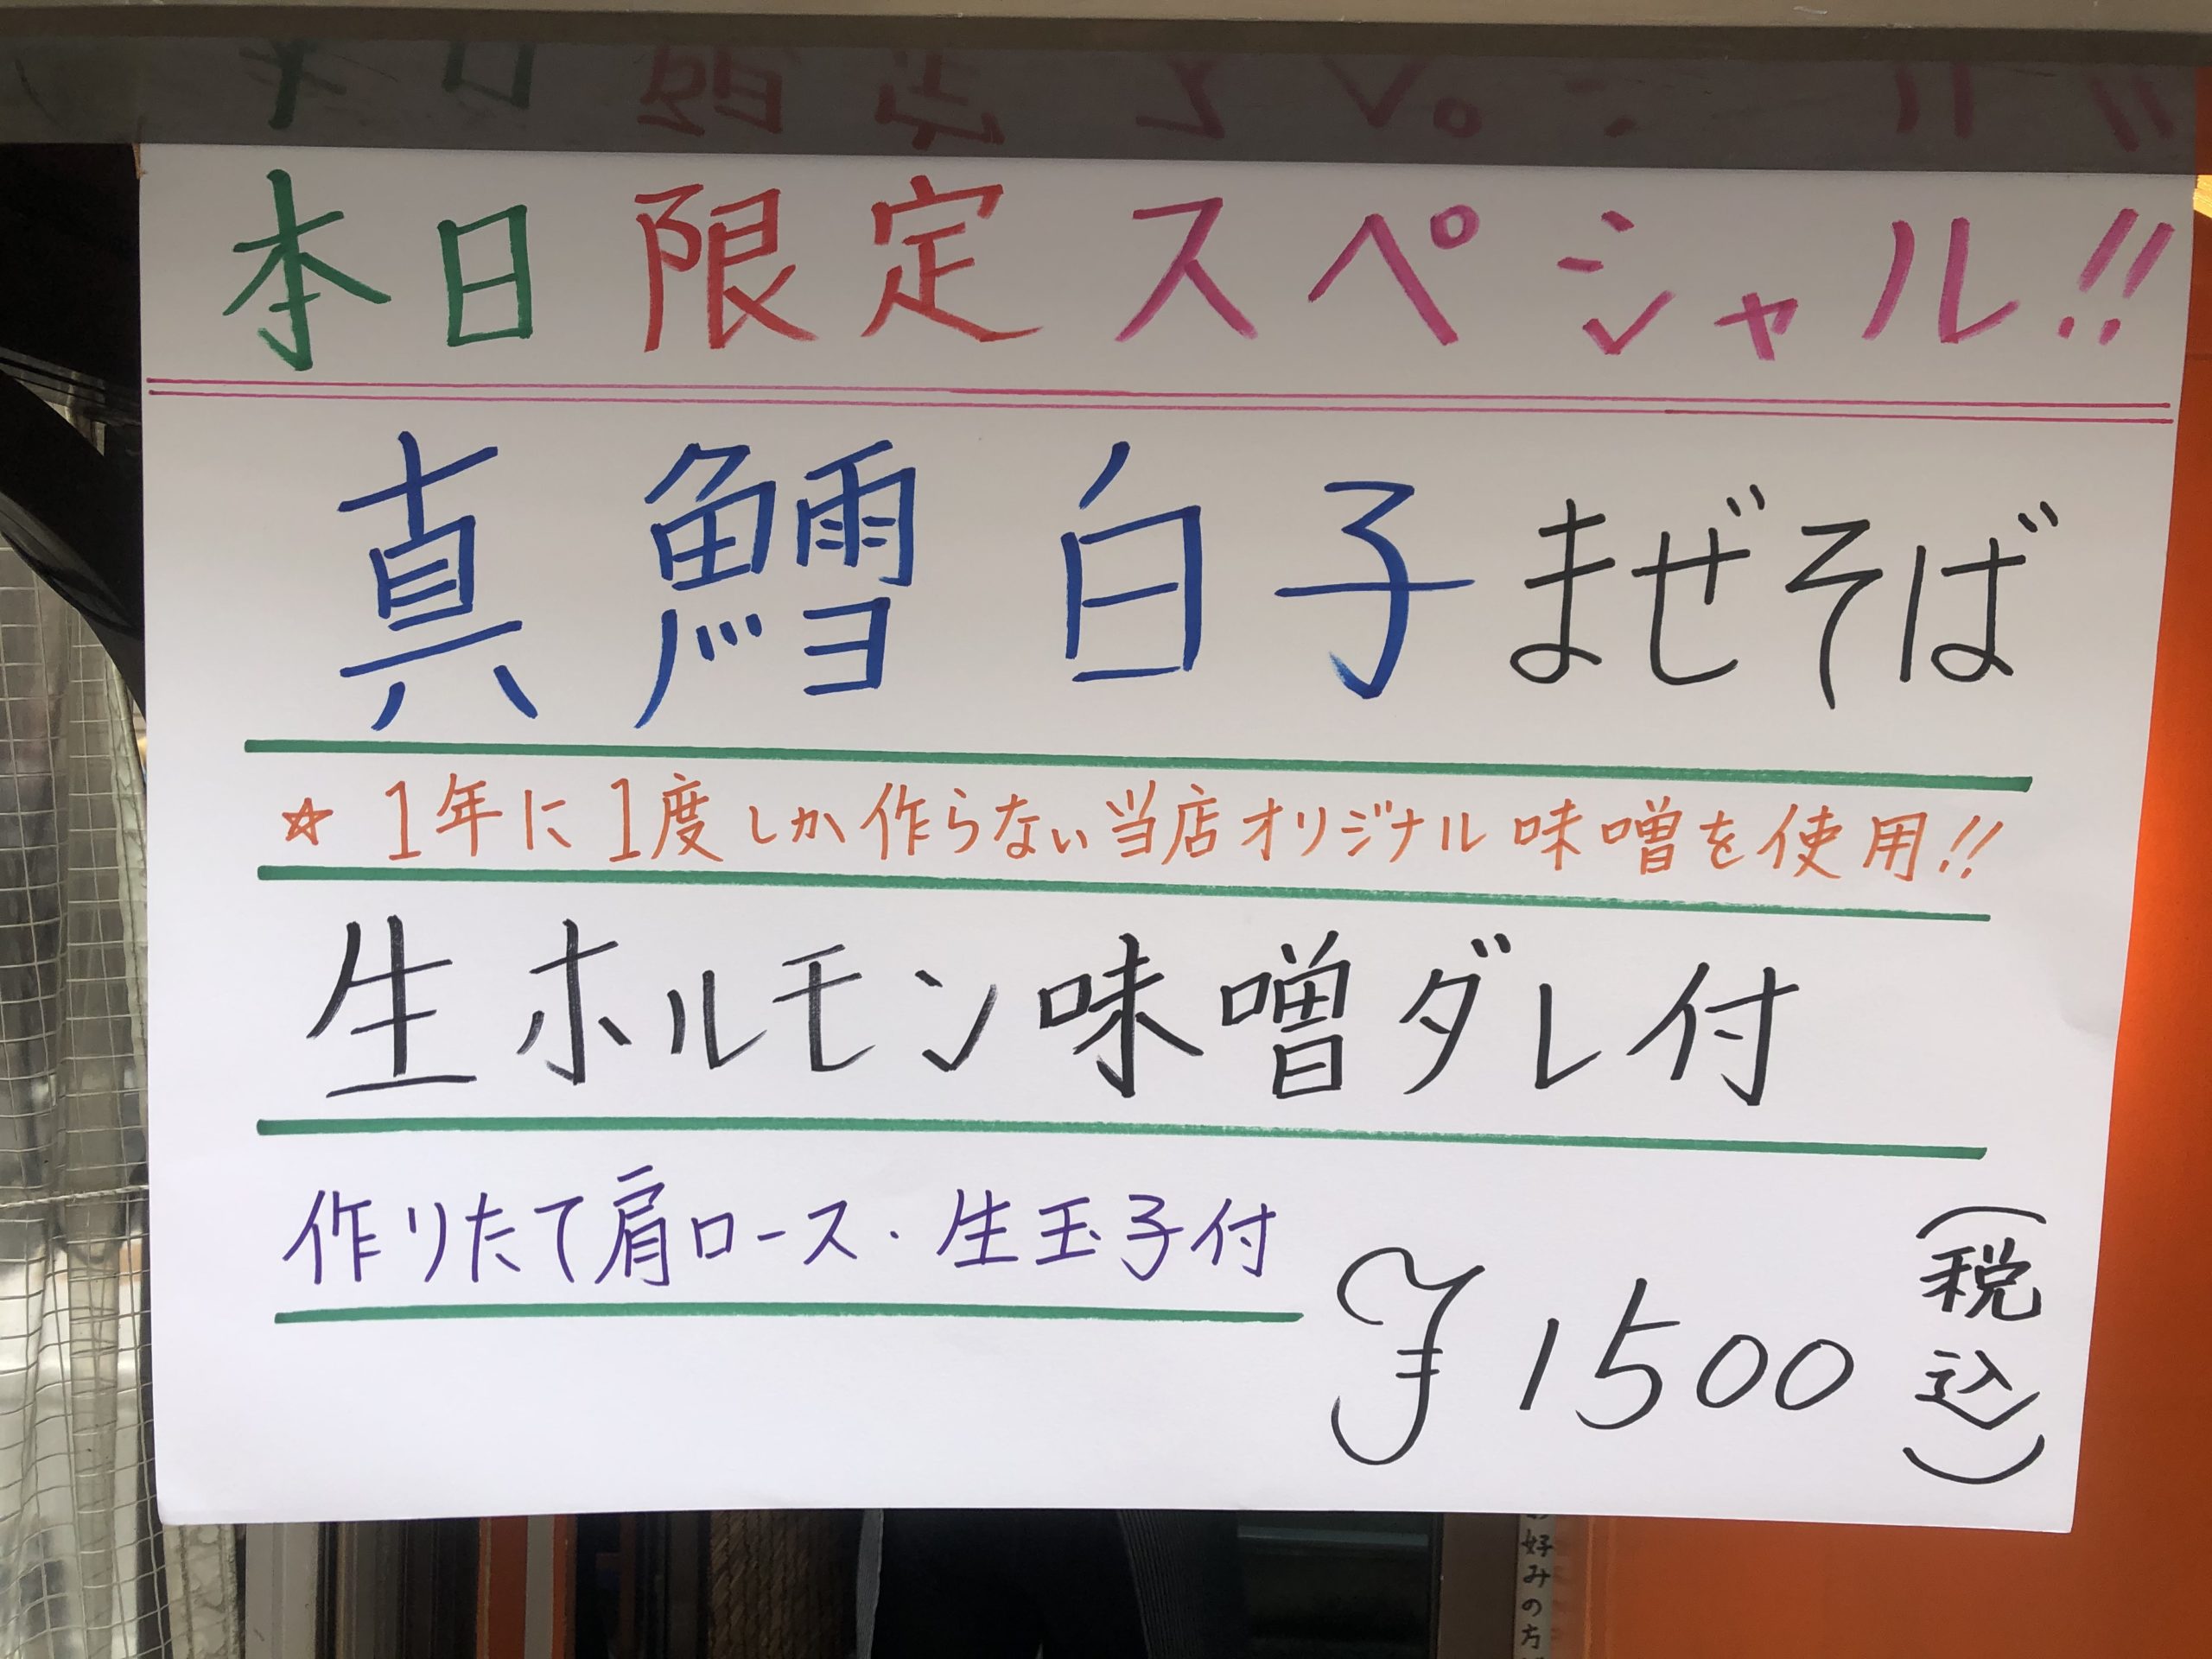 本日限定スペシャル!!
真鱈白子まぜそば
☆1年に1度しか作らない当店オリジナル味噌を使用!!
生ホルモン味噌ダレ付
作りたて肩ロース・生玉子付
¥1500(税込)
お好みの方